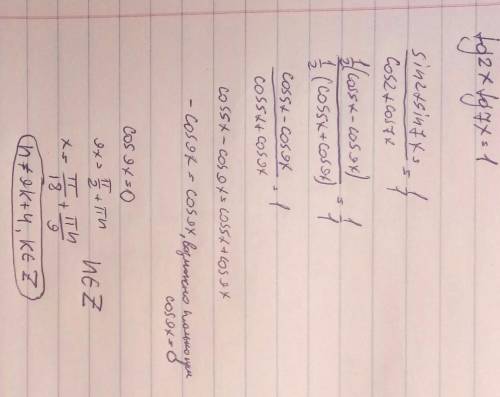 tg2x tg7x = 1
sin2x sin7x / cos2x cos7x = 1/1
1/2(cos5x - cos9x) / 1/2(cos5x + cos9x) = 1/1
cos5x - cos9x / cos5x + cos9x = 1
cos5x - cos9x = cos5x + cos9x
- cos9x = cos9x, возможно только при
cos9x = 0
cos9x = 0
9x = π/2 + πn n ∈ Z
x = π/18 + πn/9
n ≠ 9k+4, k ∈ Z